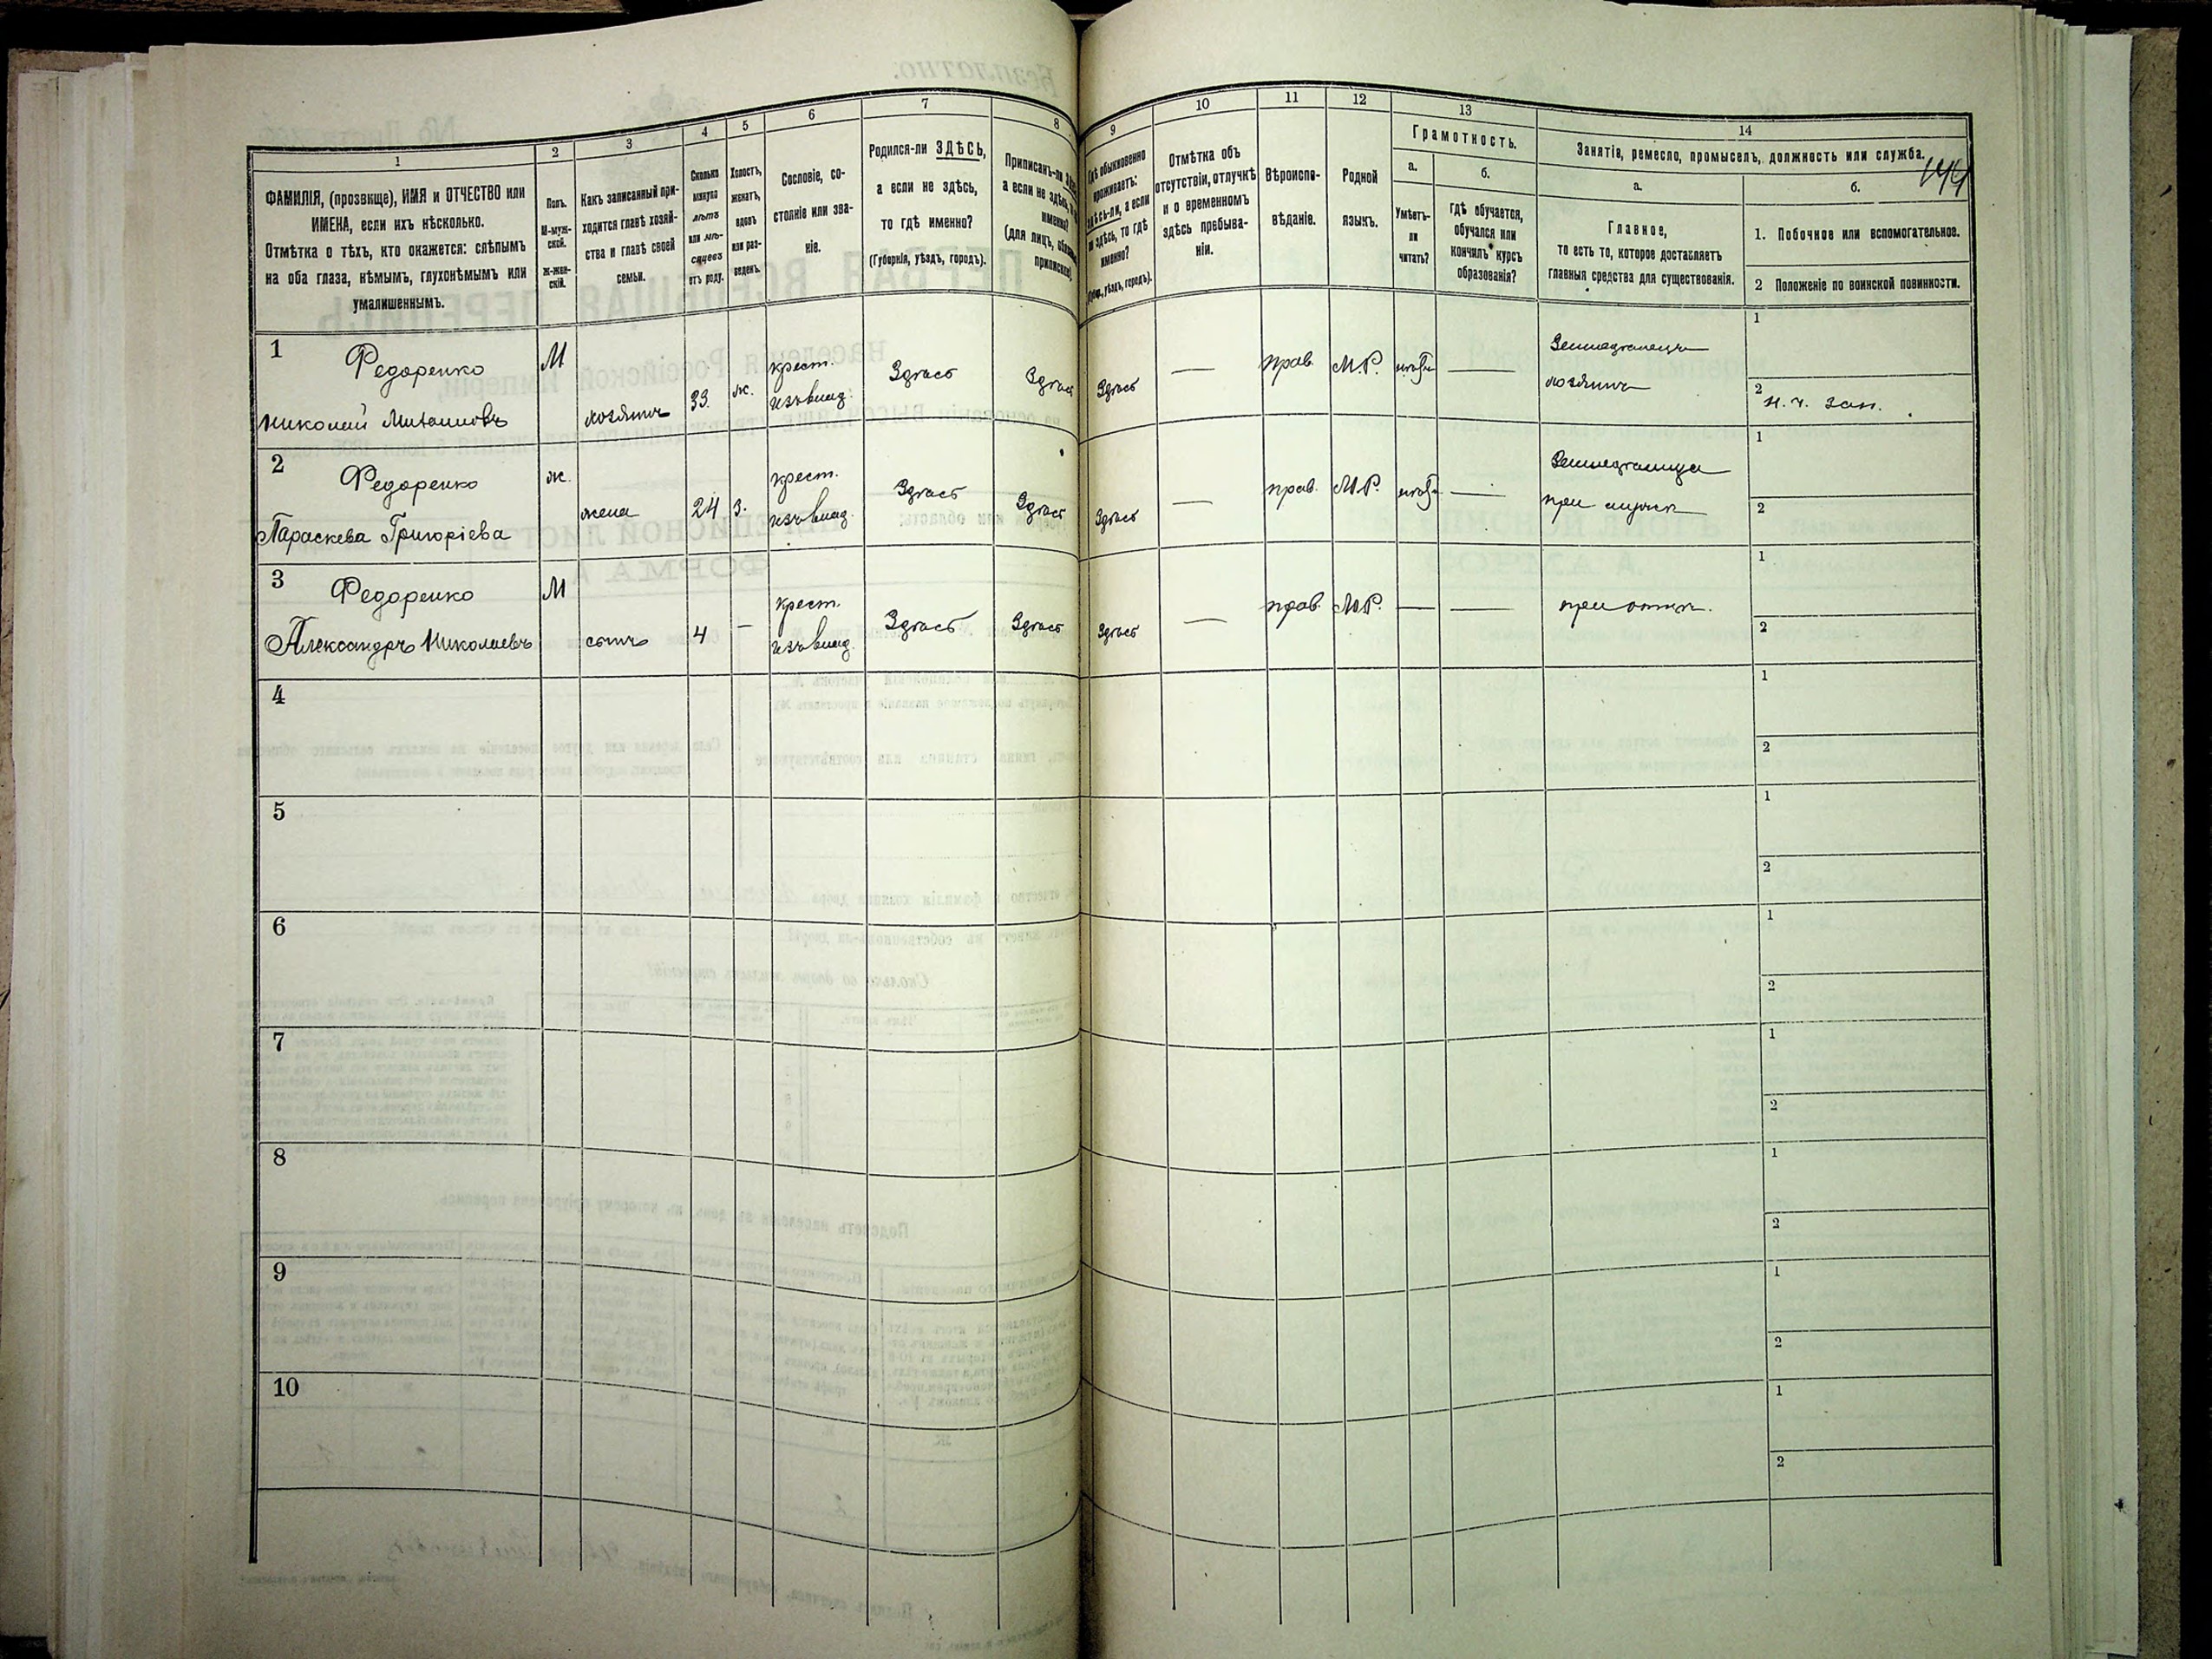 1
2
3
4
5
6
7
8
9
10
11
12
13
14
ФАМИЛІЯ, (прозвище), ИМЯ и ОТЧЕСТВО или
ИМЕНА, если ихъ нѣсколько.
Отмѣтка о тѣхъ, кто окажется: слѣпымъ
на оба глаза, нѣмымъ, глухонѣмымъ или
умалишеннымъ.
Полъ.
М-муж-
ской.
Ж-жен-
скій.
Какъ записанный при-
ходится главѣ хозяй-
ства и главѣ своей
семьи.
Сколько
минуло
лѣтъ
или мѣ-
сяцевъ
отъ роду.
Холостъ,
женатъ,
вдовъ
или раз-
веденъ.
Сословіе, со-
стояніе или зва-
ніе.
Родился-ли ЗДѢСЬ,
а если не здѣсь,
то гдѣ именно?
(Губернія, уѣздъ, городъ).
Приписанъ-ли
а если не здѣсь,
именно?
(для лицъ,
Гдѣ обыкновенно
проживаетъ:
здѣсь-ли, а если
не здѣсь, то гдѣ
именно?
уѣздъ, городъ).
Отмѣтка объ
отсутствіи, отлучкѣ
и о временномъ
здѣсь пребыва-
ніи.
Вѣроиспо-
вѣданіе.
Родной
языкъ.
Грамотность.
а.
Умѣетъ-
ли
читать?
б.
гдѣ обучается,
обучался или
кончилъ курсъ
образованія?
Занятія, ремесло, промыселъ, должность или служба.
144
а.
Главное,
то есть то, которое доставляетъ
главныя средства для существованія.
б.
1. Побочное или вспомогательное.
2 Положеніе по воинской повинности.
1 Федоренко
Николай Михайловъ
М
хозяинъ
33.
ж.
крест.
изъ влад.
Здѣсь
Здѣсь
Здѣсь
—
прав.
М.Р.
—
Земледѣлецъ
хозяинъ
1
2 н. ч. зап.
2 Федоренко
Параскева Григоріева
ж.
жена
24
з.
крест.
изъ влад.
Здѣсь
Здѣсь
Здѣсь
—
прав.
М.Р.
—
Земледѣлица
при мужѣ
1
2
3 Федоренко
Александръ Николаевъ
М
сынъ
4
—
крест.
изъ влад.
Здѣсь
Здѣсь
Здѣсь
—
прав.
М.Р.
—
—
при отцѣ.
1
2
4
1
2
5
1
2
6
1
2
7
1
2
8
1
2
9
1
2
10
1
2